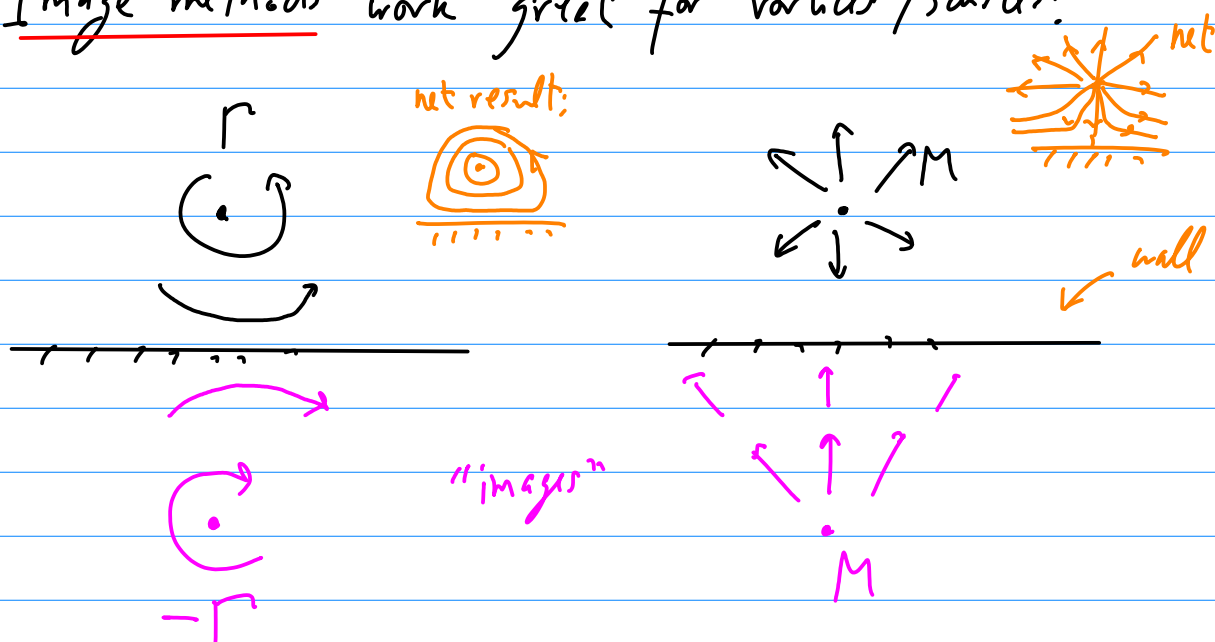 Image methods work great for vortices/sources.
net
net result:
Γ
M
wall
"images"
M
-Γ